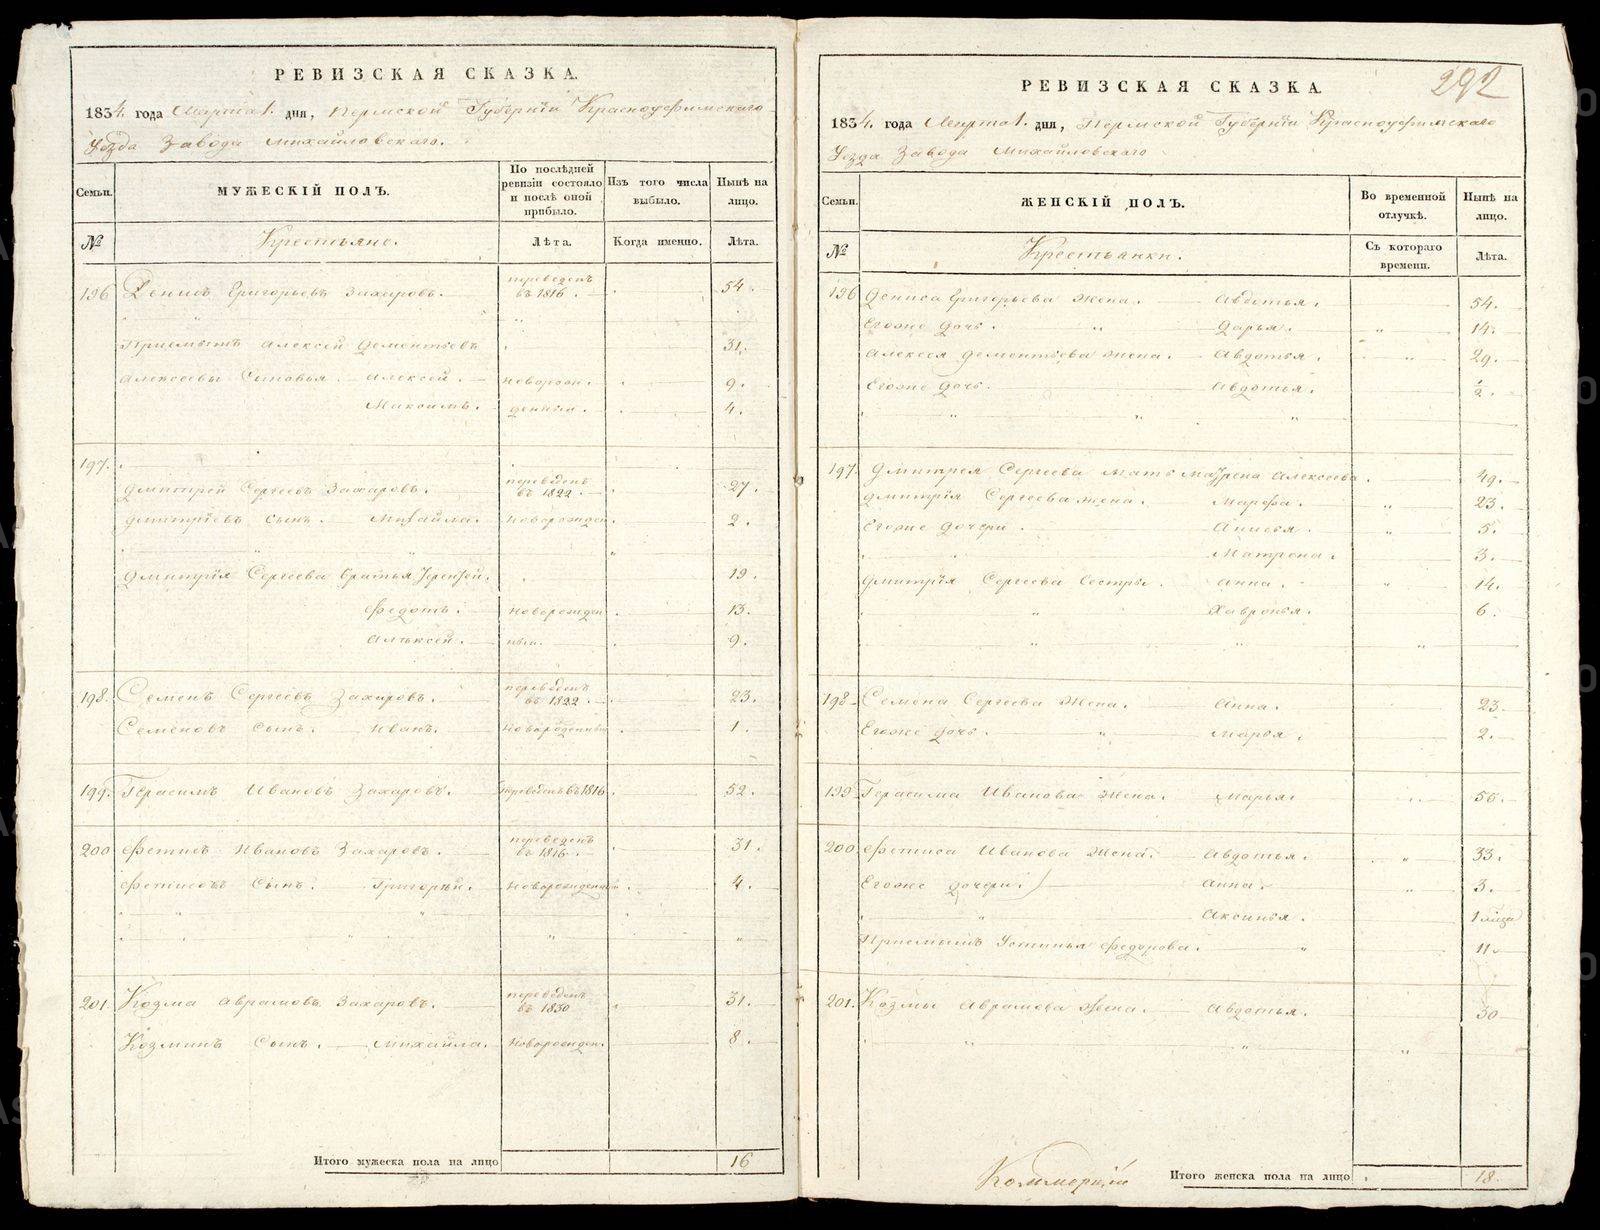 РЕВИЗСКАЯ СКАЗКА.
1834. года Марта 1. дня, Пермской Губернiи Красноуфимскаго
Уезда Завода Михайловскаго.
Семьи.
МУЖЕСКІЙ ПОЛЪ.
По послѣдней ревизіи состояло и послѣ оной прибыло.
Изъ того числа выбыло.
Нынѣ на лицо.
№
Крестьяне.
Лѣта.
Когда именно.
Лѣта.
196 Денисъ Григорьевъ Захаровъ. переведенъ въ 1816. 54.
Приемышъ Алексей Дементьевъ 31.
Алексеевы Сыновья. Алексей. новорож- 9.
Максимъ. денныи. 4.
197.
Дмитрей Сергеевъ Захаровъ. переведенъ въ 1822. 27.
Дмитрiевъ Сынъ. Михайла. Новорожден. 2.
Дмитрiя Сергеева братья Терентей. 19.
Федотъ. новорожден 13.
Алѣксей. ныи. 9.
198. Семенъ Сергеевъ Захаровъ. переведенъ въ 1822. 23.
Семеновъ Сынъ. Иванъ. Новорожденный 1.
199. Герасимъ Ивановъ Захаровъ. переведенъ въ 1816. 52.
200 Фетисъ Ивановъ Захаровъ. переведенъ въ 1816. 31.
Фетисовъ Сынъ. Григорѣй. Новорожденной. 4.
201. Козма Аврамовъ Захаровъ. переведенъ въ 1830 31.
Козминъ Сынъ. Михайла. Новорожден. 8.
Итого мужеска пола на лицо 16
292
РЕВИЗСКАЯ СКАЗКА.
1834. года Марта 1. дня, Пермской Губернiи Красноуфимскаго
Уезда Завода Михайловскаго
Семьи.
ЖЕНСКІЙ ПОЛЪ.
Во временной отлучкѣ.
Нынѣ на лицо.
№
Крестьянки.
Съ котораго времени.
Лѣта.
196 Дениса Григорьева жена. Авдотья. 54.
Егоже дочь. Дарья. 14.
Алексея Дементьева жена. Авдотья. 29.
Егоже дочь. Авдотья. 1/2.
197 Дмитрея Сергеева мать Матрена Алексеева. 49.
Дмитрiя Сергеева жена. Марфа. 23.
Егоже дочери. Анисья. 5.
Матрена. 3.
Дмитрiя Сергеева Сестры. Анна. 14.
Хавронья. 6.
198 Семена Сергеева Жена. Анна. 23.
Егоже дочь. Марья. 2.
199 Герасима Иванова Жена. Марья.
200. Фетиса Иванова Жена. Авдотья. 33.
Егоже дочери. Анна. 3.
Аксинья.
Приемышъ Устинья Федорова. 11.
201. Козмы Аврамова Жена. Авдотья. 30
Итого женска пола на лицо 18.